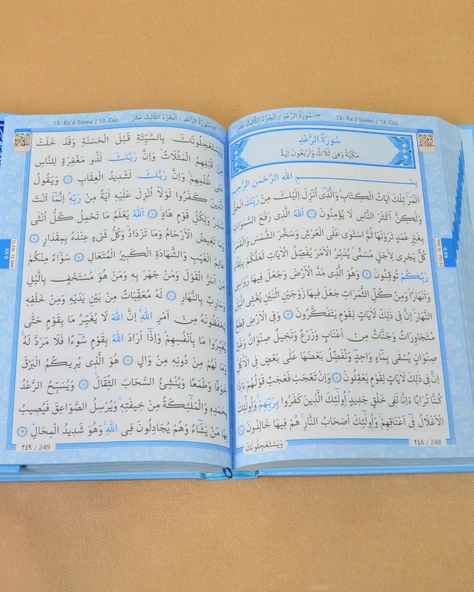 13- Ra'd Sûresi / 13. Cüz
١٣-سورة الرعد / الجزء الثالث عشر
سُورَةُ الرَّعْدِ
مَكِّيَّةٌ وَهِيَ ثَلَاثٌ وَاَرْبَعُونَ اٰيَةً
بِسْمِ اللّٰهِ الرَّحْمٰنِ الرَّحِيمِ
الٓمٓرٰ تِلْكَ اٰيَاتُ الْكِتَابِ وَالَّذِٓي اُنْزِلَ اِلَيْكَ مِنْ رَبِّكَ الْحَقُّ
وَلٰكِنَّ اَكْثَرَ النَّاسِ لَا يُؤْمِنُونَ ١ اَللّٰهُ الَّذِي رَفَعَ السَّمٰوَاتِ
بِغَيْرِ عَمَدٍ تَرَوْنَهَا ثُمَّ اسْتَوٰى عَلَى الْعَرْشِ وَسَخَّرَ الشَّمْسَ وَالْقَمَرَ
كُلٌّ يَجْرِي لِاَجَلٍ مُسَمًّى يُدَبِّرُ الْاَمْرَ يُفَصِّلُ الْاٰيَاتِ لَعَلَّكُمْ بِلِقَٓاءِ
رَبِّكُمْ تُوقِنُونَ ٢ وَهُوَ الَّذِي مَدَّ الْاَرْضَ وَجَعَلَ فِيهَا رَوَاسِيَ
وَاَنْهَارًا وَمِنْ كُلِّ الثَّمَرَاتِ جَعَلَ فِيهَا زَوْجَيْنِ اثْنَيْنِ يُغْشِي الَّيْلَ
النَّهَارَ اِنَّ فِي ذٰلِكَ لَاٰيَاتٍ لِقَوْمٍ يَتَفَكَّرُونَ ٣ وَفِي الْاَرْضِ قِطَعٌ
مُتَجَاوِرَاتٌ وَجَنَّاتٌ مِنْ اَعْنَابٍ وَزَرْعٌ وَنَخِيلٌ صِنْوَانٌ وَغَيْرُ
صِنْوَانٍ يُسْقٰى بِمَٓاءٍ وَاحِدٍ وَنُفَضِّلُ بَعْضَهَا عَلٰى بَعْضٍ فِي الْاُكُلِ
اِنَّ فِي ذٰلِكَ لَاٰيَاتٍ لِقَوْمٍ يَعْقِلُونَ ٤ وَاِنْ تَعْجَبْ فَعَجَبٌ قَوْلُهُمْ ءَاِذَا
كُنَّا تُرَابًا ءَاِنَّا لَفِي خَلْقٍ جَدِيدٍ اُولٰٓئِكَ الَّذِينَ كَفَرُوا بِرَبِّهِمْ وَاُولٰٓئِكَ
الْاَغْلَالُ فِٓي اَعْنَاقِهِمْ وَاُولٰٓئِكَ اَصْحَابُ النَّارِ هُمْ فِيهَا خَالِدُونَ ٥
وَيَسْتَعْجِلُونَكَ
٢٤٨ / 248
13- Ra'd Sûresi / 13. Cüz
١٣-سورة الرعد / الجزء الثالث عشر
وَيَسْتَعْجِلُونَكَ بِالسَّيِّئَةِ قَبْلَ الْحَسَنَةِ وَقَدْ خَلَتْ
مِنْ قَبْلِهِمُ الْمَثُلَاتُ وَاِنَّ رَبَّكَ لَذُو مَغْفِرَةٍ لِلنَّاسِ
عَلٰى ظُلْمِهِمْ وَاِنَّ رَبَّكَ لَشَدِيدُ الْعِقَابِ ٦ وَيَقُولُ
الَّذِينَ كَفَرُوا لَوْلَٓا اُنْزِلَ عَلَيْهِ اٰيَةٌ مِنْ رَبِّهِ اِنَّمَٓا اَنْتَ
مُنْذِرٌ وَلِكُلِّ قَوْمٍ هَادٍ ٧ اَللّٰهُ يَعْلَمُ مَا تَحْمِلُ كُلُّ اُنْثٰى
وَمَا تَغِيضُ الْاَرْحَامُ وَمَا تَزْدَادُ وَكُلُّ شَيْءٍ عِنْدَهُ بِمِقْدَارٍ ٨
عَالِمُ الْغَيْبِ وَالشَّهَادَةِ الْكَبِيرُ الْمُتَعَالِ ٩ سَوَٓاءٌ مِنْكُمْ
مَنْ اَسَرَّ الْقَوْلَ وَمَنْ جَهَرَ بِهِ وَمَنْ هُوَ مُسْتَخْفٍ بِالَّيْلِ
وَسَارِبٌ بِالنَّهَارِ ١٠ لَهُ مُعَقِّبَاتٌ مِنْ بَيْنِ يَدَيْهِ وَمِنْ خَلْفِهِ
يَحْفَظُونَهُ مِنْ اَمْرِ اللّٰهِ اِنَّ اللّٰهَ لَا يُغَيِّرُ مَا بِقَوْمٍ حَتّٰى
يُغَيِّرُوا مَا بِاَنْفُسِهِمْ وَاِذَٓا اَرَادَ اللّٰهُ بِقَوْمٍ سُٓوءًا فَلَا مَرَدَّ لَهُ
وَمَا لَهُمْ مِنْ دُونِهِ مِنْ وَالٍ ١١ هُوَ الَّذِي يُرِيكُمُ الْبَرْقَ
خَوْفًا وَطَمَعًا وَيُنْشِئُ السَّحَابَ الثِّقَالَ ١٢ وَيُسَبِّحُ الرَّعْدُ
بِحَمْدِهِ وَالْمَلٰٓئِكَةُ مِنْ خِيفَتِهِ وَيُرْسِلُ الصَّوَاعِقَ فَيُصِيبُ
بِهَا مَنْ يَشَٓاءُ وَهُمْ يُجَادِلُونَ فِي اللّٰهِ وَهُوَ شَدِيدُ الْمِحَالِ ١٣
٢٤٩ / 249